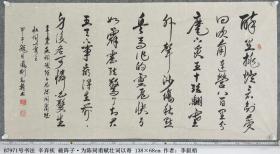 醉里挑灯看剑梦
回吹角连营八百里分
麾下炙五十弦翻塞
外声沙场秋点兵
马作的卢飞快弓
如霹雳弦惊了却君
王天下事赢得生前
身后名可怜白发生
67971号书法 辛弃疾 破阵子·为陈同甫赋壮词以寄 138×68cm 作者：李银